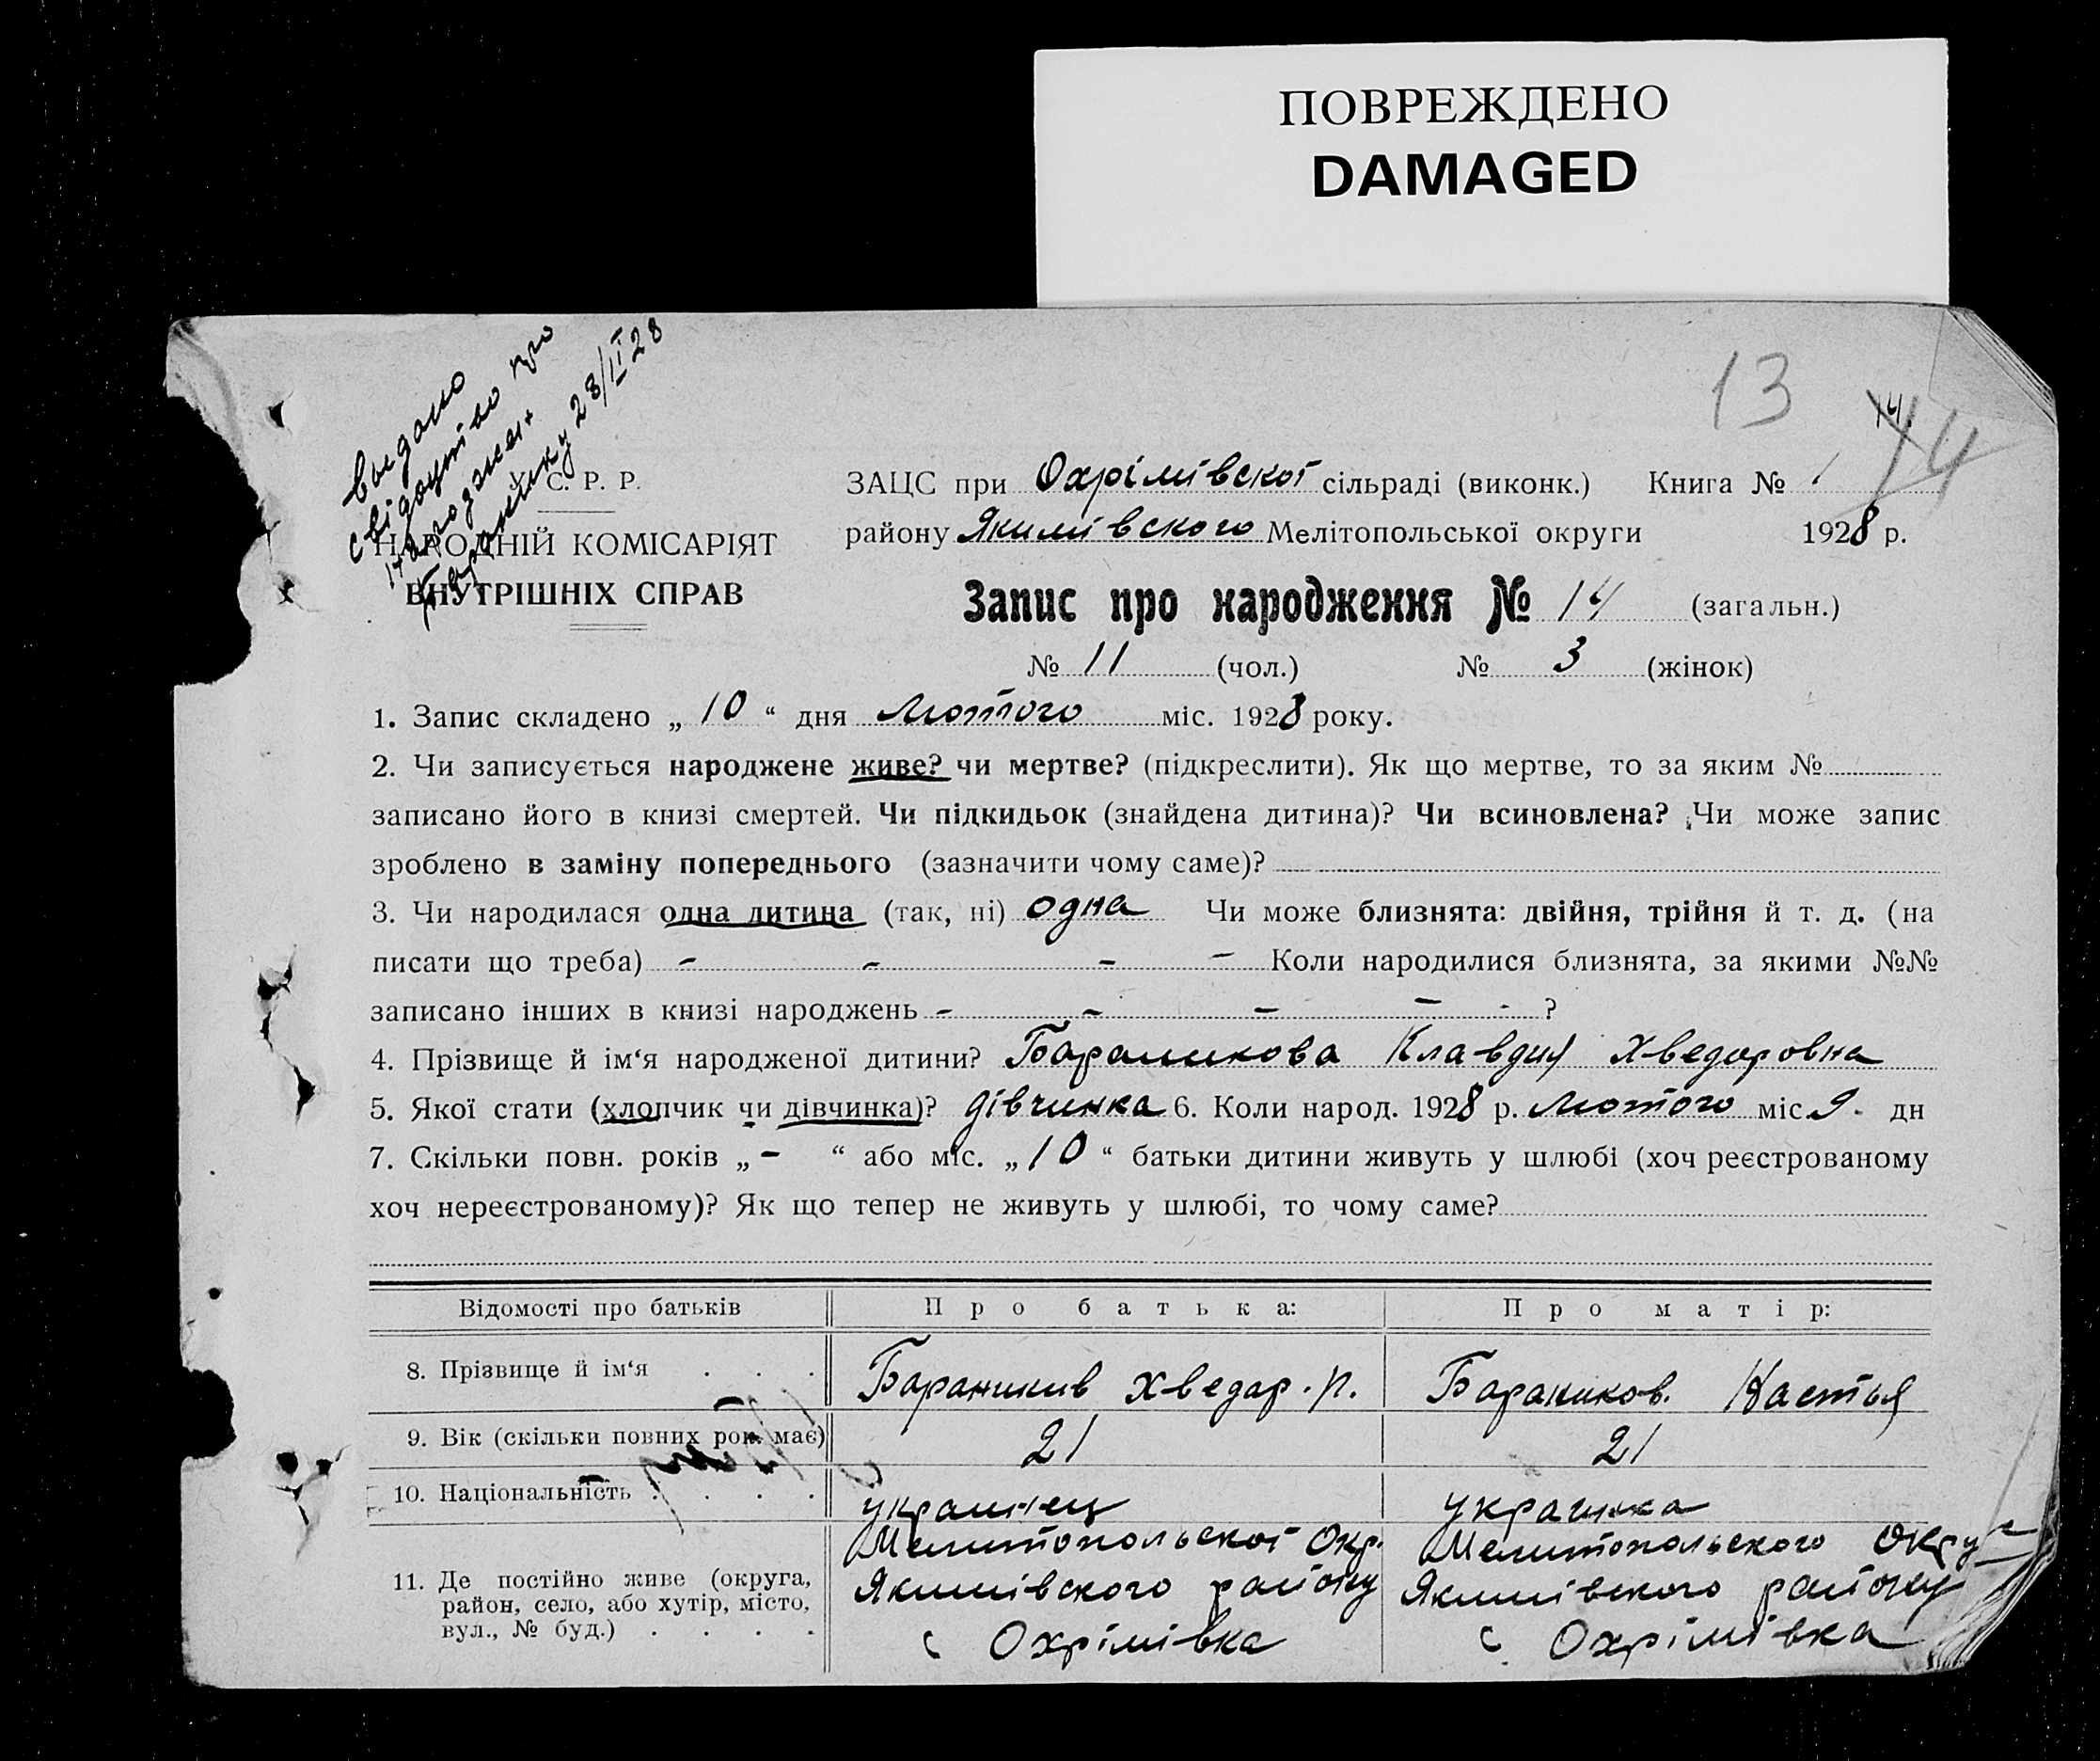 ПОВРЕЖДЕНО
DAMAGED
13
14
14
видано
свідоцтво про
народжен
28/II 28
У. С. Р. Р.
НАРОДНІЙ КОМІСАРІЯТ
ВНУТРІШНІХ СПРАВ
ЗАЦС при Охрімівскої сільраді (виконк.) Книга № 1
району Якимівского Мелітопольської округи 1928 р.
Запис про народження № 14 (загальн.)
№ 11 (чол.) № 3 (жінок)
1. Запис складено „ 10 “ дня Лютого міс. 1928 року.
2. Чи записується народжене живе? чи мертве? (підкреслити). Як що мертве, то за яким №
записано його в книзі смертей. Чи підкидьок (знайдена дитина)? Чи всиновлена? Чи може запис
зроблено в заміну попереднього (зазначити чому саме)?
3. Чи народилася одна дитина (так, ні) одна Чи може близнята: двійня, трійня й т. д. (на
писати що треба) - - - - Коли народилися близнята, за якими №№
записано інших в книзі народжень - - - - - ?
4. Прізвище й ім‘я народженої дитини? Бараникова Клавдия Хведоровна
5. Якої стати (хлопчик чи дівчинка)? дівчинка 6. Коли народ. 1928 р. Лютого міс 9. дн
7. Скільки повн. років „ - “ або міс. „ 10 “ батьки дитини живуть у шлюбі (хоч реєстрованому
хоч нереєстрованому)? Як що тепер не живуть у шлюбі, то чому саме?
Відомості про батьків Про батька: Про матір:
8. Прізвище й ім‘я . . . Бараникив Хведар. П. Бараников. Настья
9. Вік (скільки повних рок. має) 21 21
10. Національність . . . . украинец украинка
11. Де постійно живе (округа, район, село, або хутір, місто, вул., № буд.) . . . .
Мелитопольскоі Окр. Якимівского району с Охрімівка
Мелитопольского Округ Якимівского району с. Охрімівка